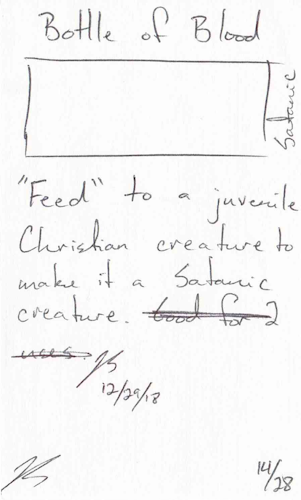 Bottle of Blood
Satanic
"Feed" to a juvenile
Christian creature to
make it a Satanic
creature. Good for 2
uses.
12/29/18
14/28